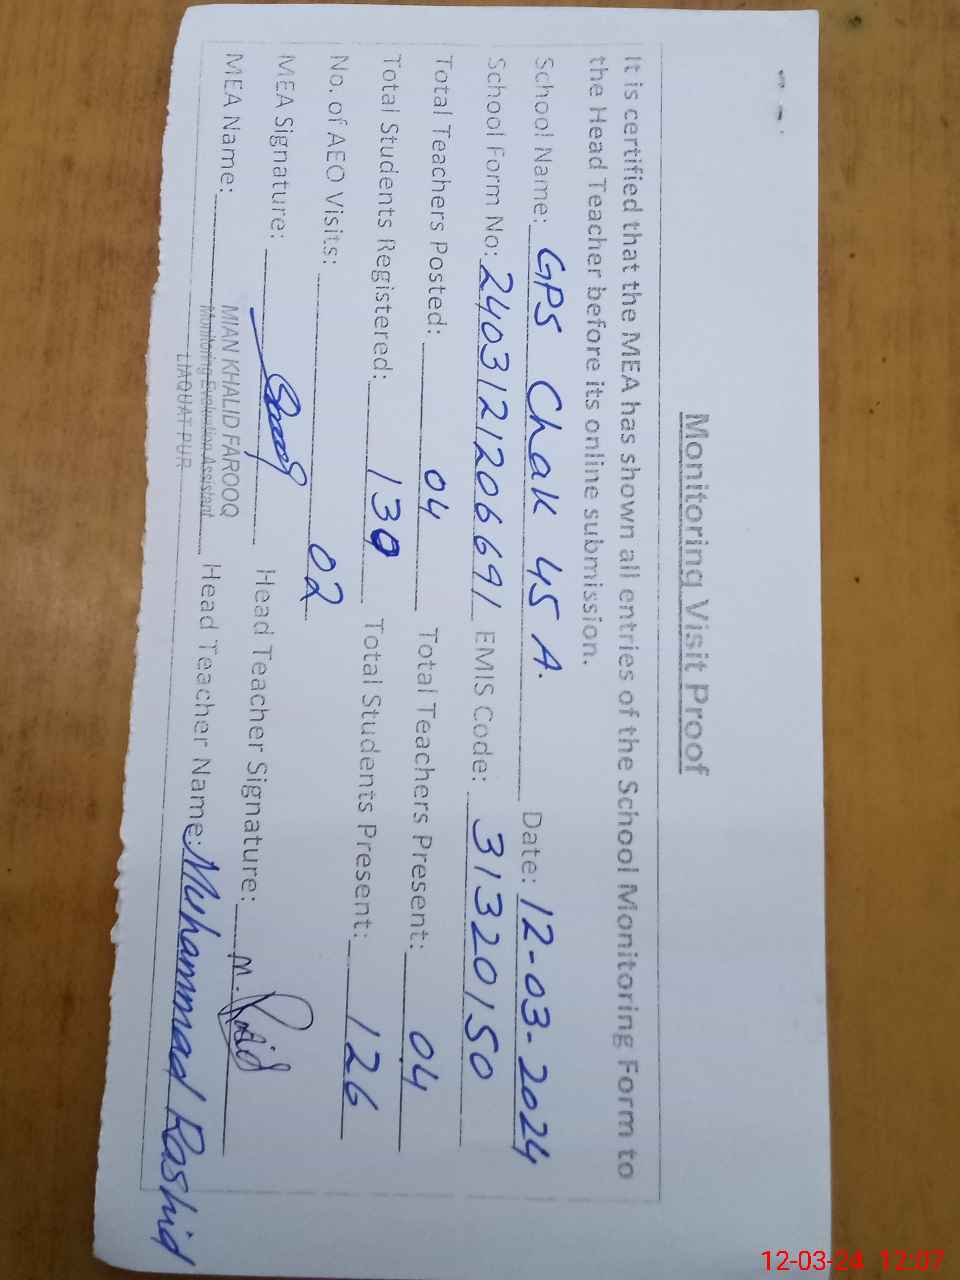 Monitoring Visit Proof
It is certified that the MEA has shown all entries of the School Monitoring Form to
the Head Teacher before its online submission.
School Name: GPS Chak 45 A. Date: 12-03-2024
School Form No: 2403121206691 EMIS Code: 31320150
Total Teachers Posted: 04 Total Teachers Present: 04
Total Students Registered: 130 Total Students Present: 126
No. of AEO Visits: 02
MEA Signature: Head Teacher Signature: M. Rashid
MEA Name: MIAN KHALID FAROOQ Head Teacher Name: Muhammad Rashid
Monitoring Evaluation Assistant
LIAQUAT PUR
12-03-24 12:07